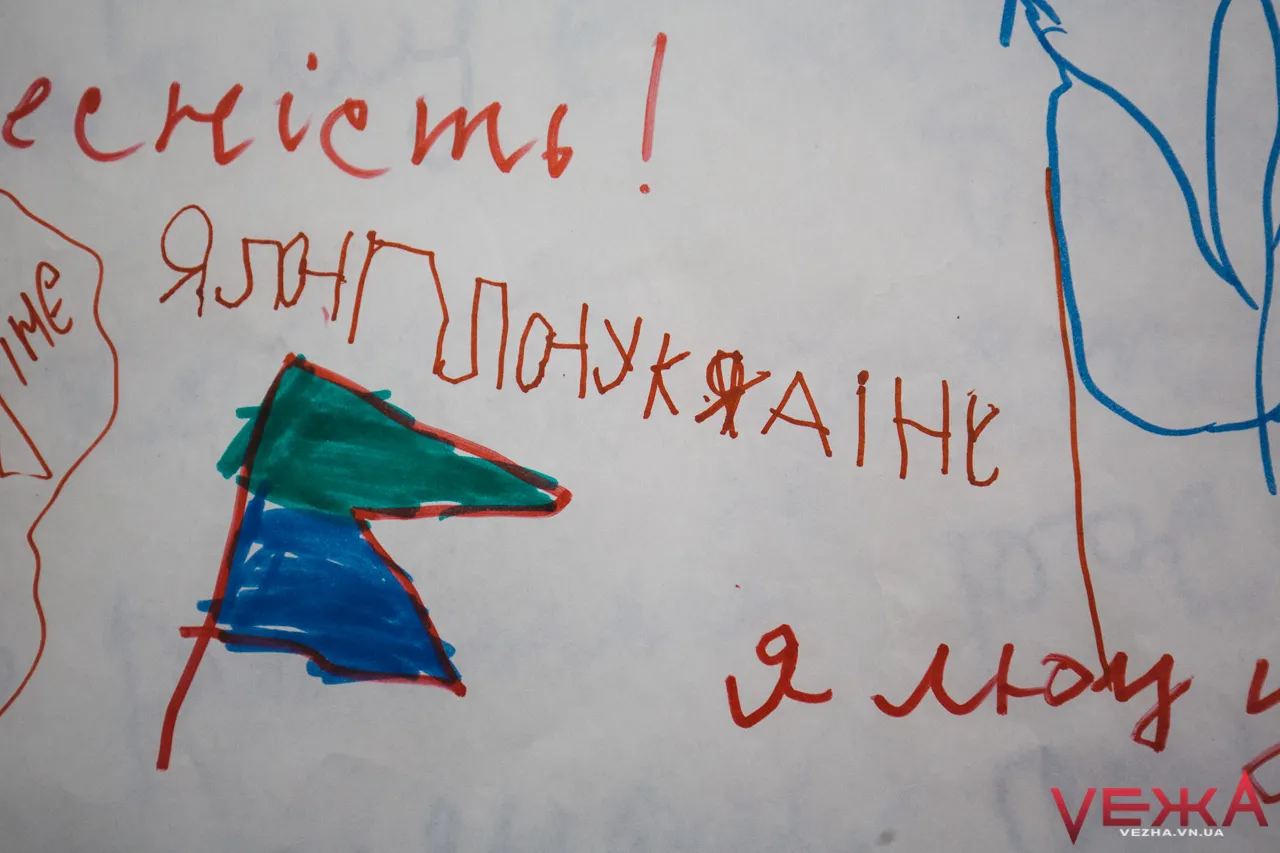 есність!
ІМЕ
ЯЛЮПЛЮУКЯАІНЕ
я люу
VЕЖА
VEZHA.VN.UA